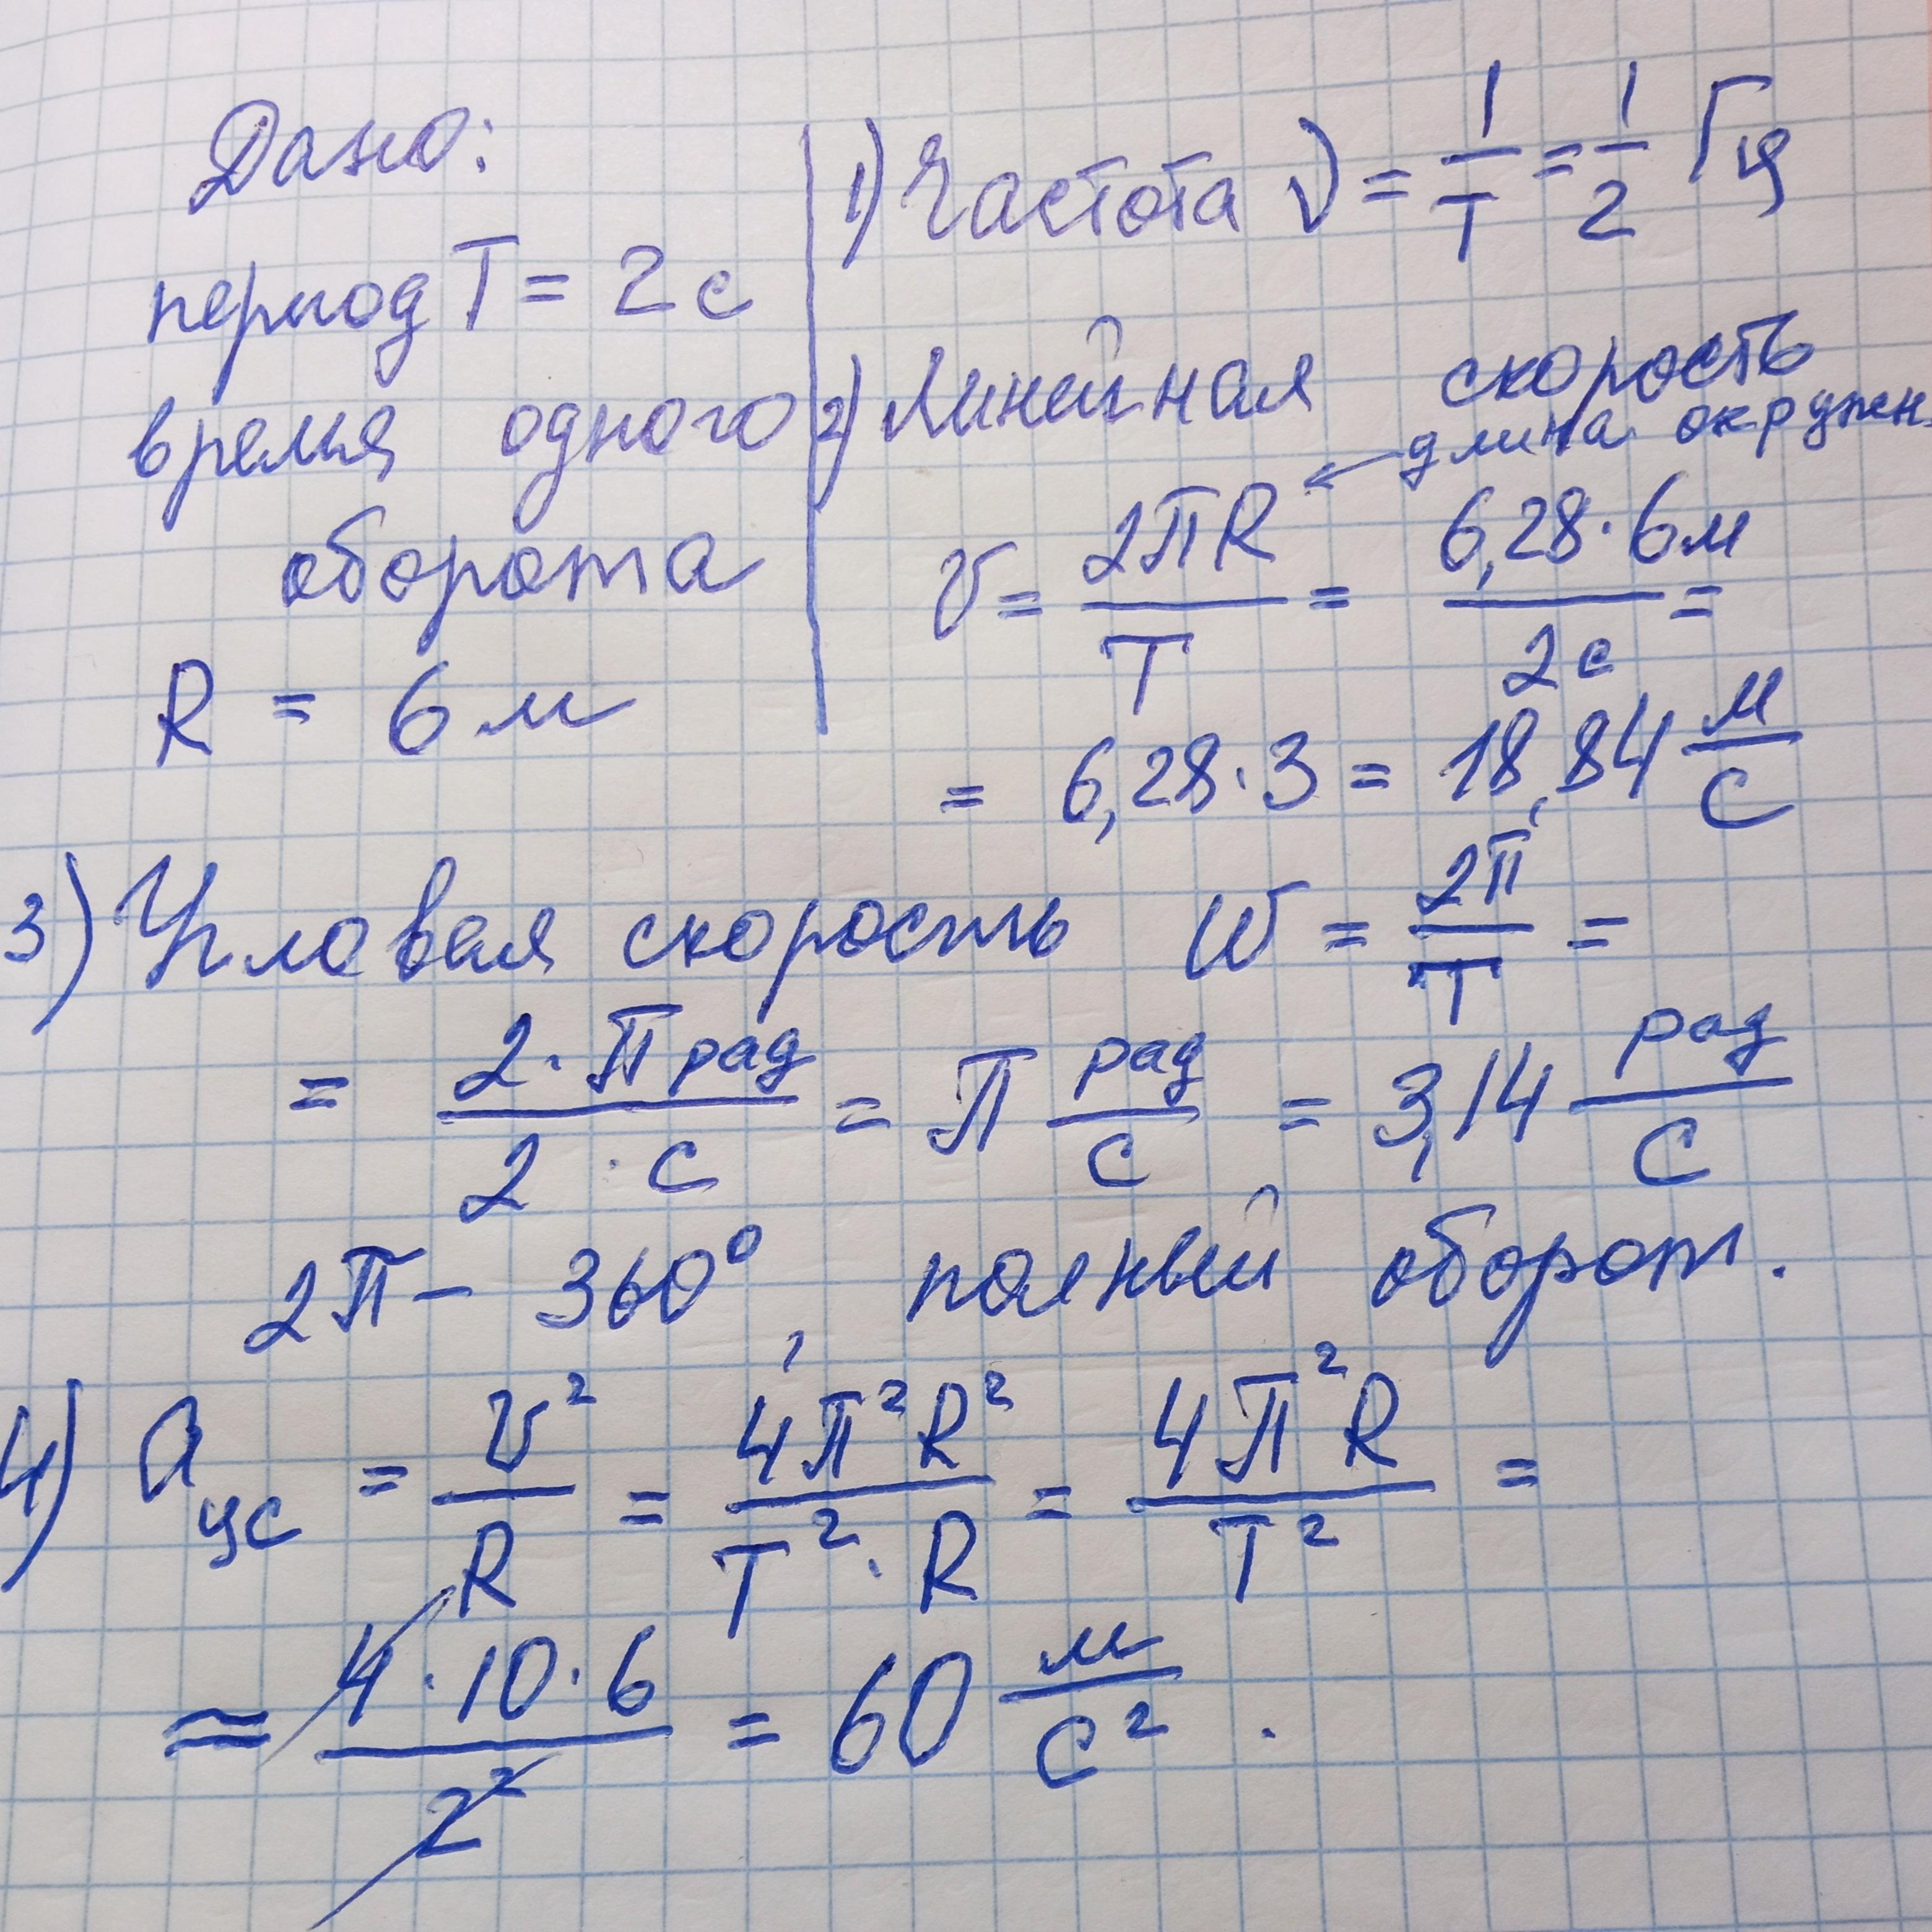 Дано:
период T = 2 с
время одного
оборота
R = 6 м
1) Частота ν = 1/T = 1/2 Гц
2) Линейная скорость
длина окружн.
v = 2πR/T = 6,28·6м/2с =
= 6,28·3 = 18,84 м/с
3) Угловая скорость w = 2π/T =
= 2·π рад/2·с = π рад/с = 3,14 рад/с
2π – 360°, полный оборот.
4) a цс = v²/R = 4π²R²/T²·R = 4π²R/T² =
≈ 4·10·6/2² = 60 м/с².